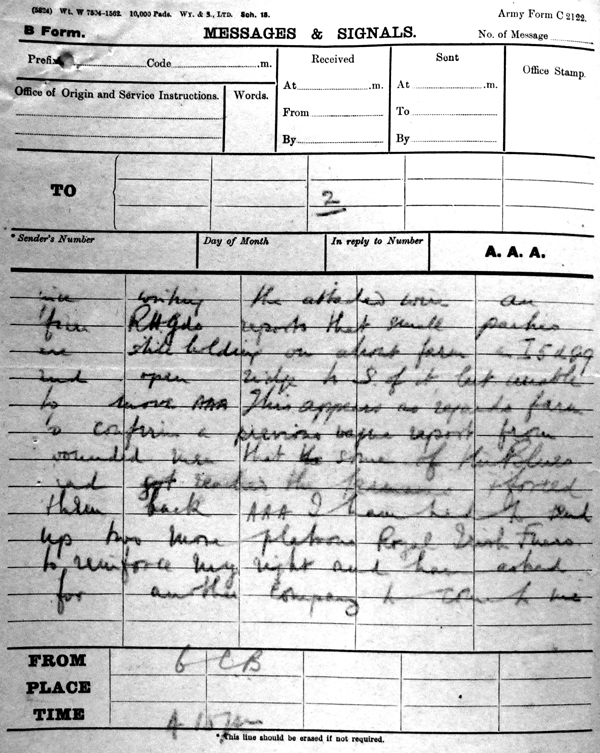 (5824) Wt. W 7504-1562. 10,000 Pads. Wy. & S., LTD. Sch. 18.
Army Form C 2122.
B Form.
MESSAGES & SIGNALS.
No. of Message
Prefix Code m.
Received
Sent
Office Stamp.
Office of Origin and Service Instructions.
Words.
At .m.
At .m.
From
To
By
By
TO
2
* Sender's Number
Day of Month
In reply to Number
A. A. A.
writing the attached wire an
R H Gds reports that small parties
are still holding on about farm I 5 d 9 9
and open ridge to S of it but unable
to move AAA This appears as regards farm
to confirm a previous vague report from
wounded men that some of the Blues
had got the forced
them back AAA I have had to send
up two more platoons Royal Irish Fusrs
to reinforce my right and have asked
for another company to come to me
FROM
6 C B
PLACE
TIME
* This line should be erased if not required.